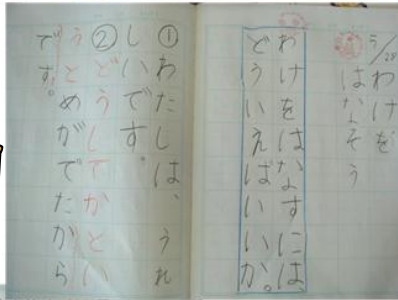 5/28
わけを
はなそう
わけをはなすには、
どういえばいいか。
①わたしは、うれ
しいです。
②どうしてかとい
うとめがでたから
です。